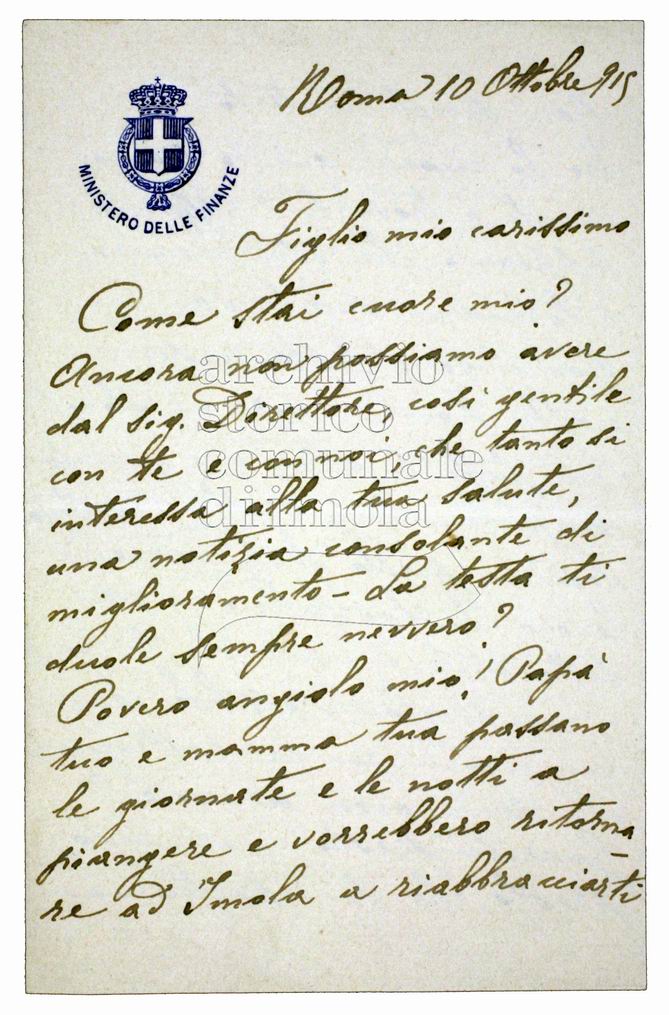 Roma 10 Ottobre 915
MINISTERO DELLE FINANZE
Figlio mio carissimo
Come stai cuore mio?
Ancora non possiamo avere
dal sig. Direttore, così gentile
con te e con noi, che tanto si
interessa alla tua salute,
una notizia consolante di
miglioramento - La testa ti
duole sempre nevvero?
Povero angiolo mio! Papà
tuo e mamma tua passano
le giornate e le notti a
piangere e vorrebbero ritorna-
re ad Imola a riabbracciarti
archivio
storico
comunale
di imola